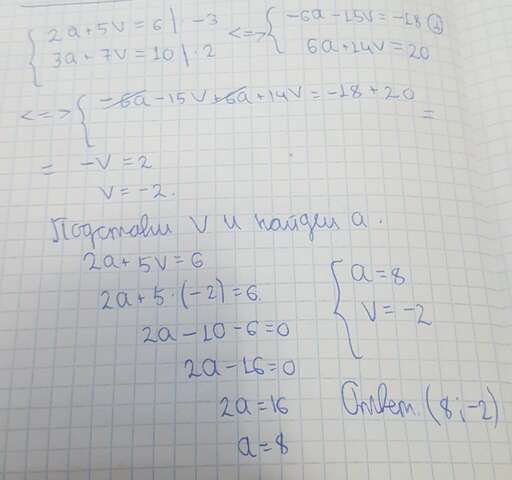 { 2a+5v=6 | · -3 <=> { -6a-15v=-18 (+)
3a+7v=10 | · 2 6a+14v=20
<=> { -6a-15v+6a+14v=-18+20 =
= -v=2
v=-2.
Подставим v и найдем a.
2a+5v=6
2a+5·(-2)=6
2a-10-6=0
2a-16=0
2a=16
a=8
{ a=8
v=-2
Ответ (8;-2)